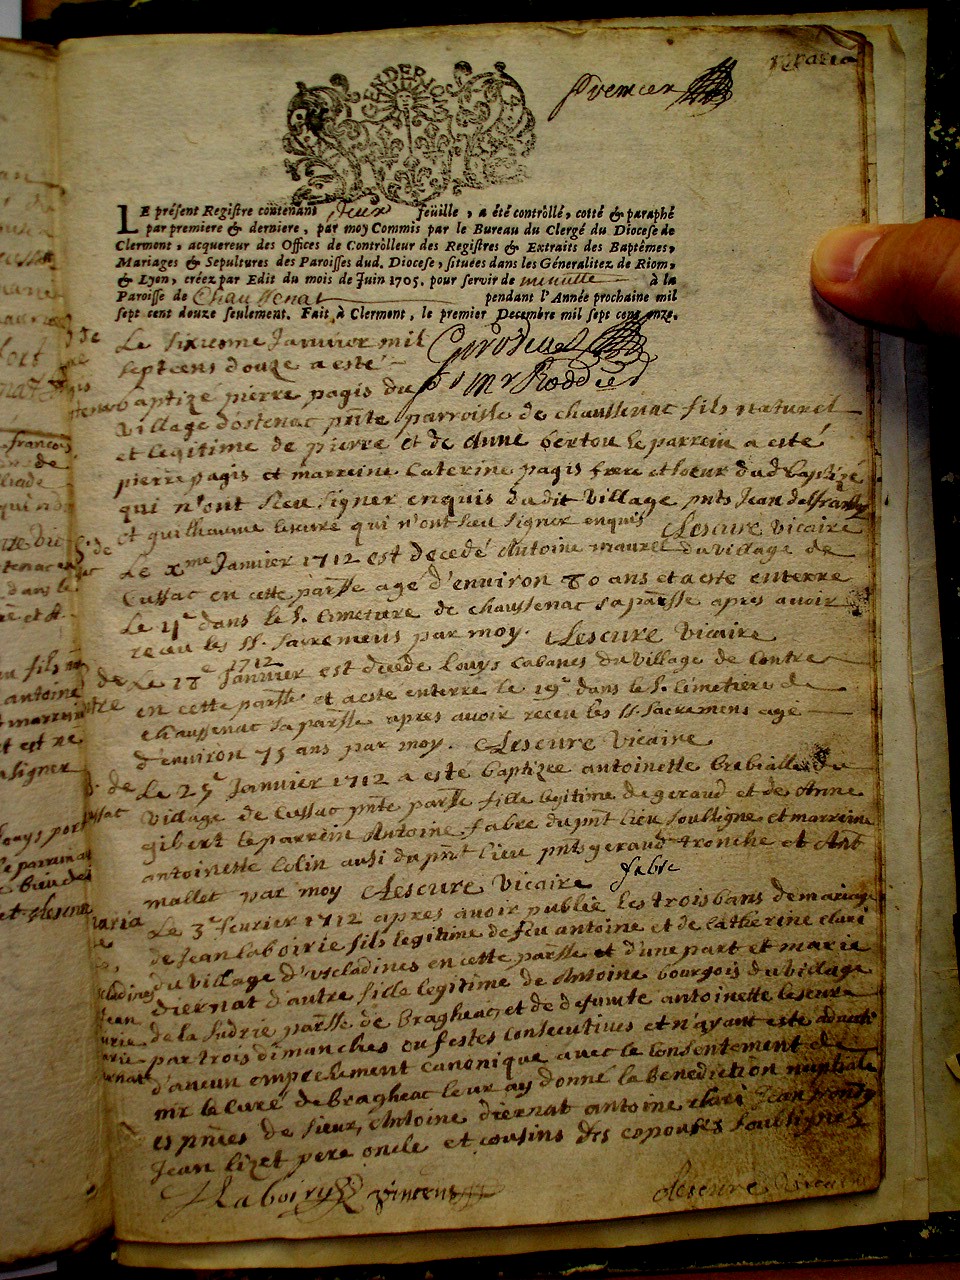 GENDERIOM
premier
LE présent Registre contenant deux feüille, a été contrôllé, cotté & paraphé
par premiere & derniere, par moy Commis par le Bureau du Clergé du Diocese de
Clermont, acquereur des Offices de Contrôlleur des Registres & Extraits des Baptêmes,
Mariages & Sepultures des Paroisses dud. Diocese, situées dans les Géneralitez de Riom,
& Lyon, créez par Edit du mois de Juin 1705. pour servir de minutte à la
Paroisse de Chaussenat pendant l'Année prochaine mil
sept cent douze seulement. Fait à Clermont, le premier Decembre mil sept cens onze.
Le sixiesme Janvier mil
sept cens douze a esté
baptizé pierre pagis du pr Mr Roddier
village dostenac pnte parroisse de chaussenac fils naturel
et legitime de pierre et de Anne bertou le parrein a esté
pierre pagis et marreine Caterine pagis frere et soeur dud baptizé
qui n'ont sceu signer enquis dudit village pnts Jean
et guilhaume lescure qui n'ont sceu signer enquis Lescure vicaire
Le xme Janvier 1712 est decedé Antoine maurel du village de
Cussac en cette parsse agé d'environ 80 ans et a esté enterré
Le 11e dans le S. Cimetiere de chaussenac sa parsse apres avoir
receu les SS. Sacremens par moy. Lescure vicaire
Le 18e Janvier 1712 est decedé Louys Cabanes du village de Contre
en cette parsse et a esté enterré le 19e dans le S. Cémetiere de
chaussenac sa parsse apres avoir receu les SS. Sacremens agé
d'environ 75 ans par moy. Lescure vicaire
Le 25 Janvier 1712 a esté baptizée antoinette du
village de Cussac pnte parsse fille legitime de geraud et de Anne
gibert le parrein Antoine fabre du pnt lieu soussigne et marreine
antoinette Colin aussi du pnt lieu pnts geraud tronche et Ant
mallet par moy Lescure vicaire fabre
Le 3e fevrier 1712 apres avoir publié les trois bans de mariage
de Jean laboirie fils legitime de feu antoine et de Catherine
du village d'Escladines en cette parsse et d'une part et marie
diernat d'autre fille legitime de Antoine bourgois du village
de la Sudrie parsse de bragheac, et de defunte antoinette lescure
par trois dimanches ou festes consecutives et n'ayant esté
d'aucun empechement canonique avec le consentement de
mr le Curé de bragheac leur ay donné la benediction nuptiale
es pnces de sieur Antoine diernat antoine Jean
Jean lizet pere oncle et cousins des epouses soussignez
Laboiry vincens Lescure vicaire